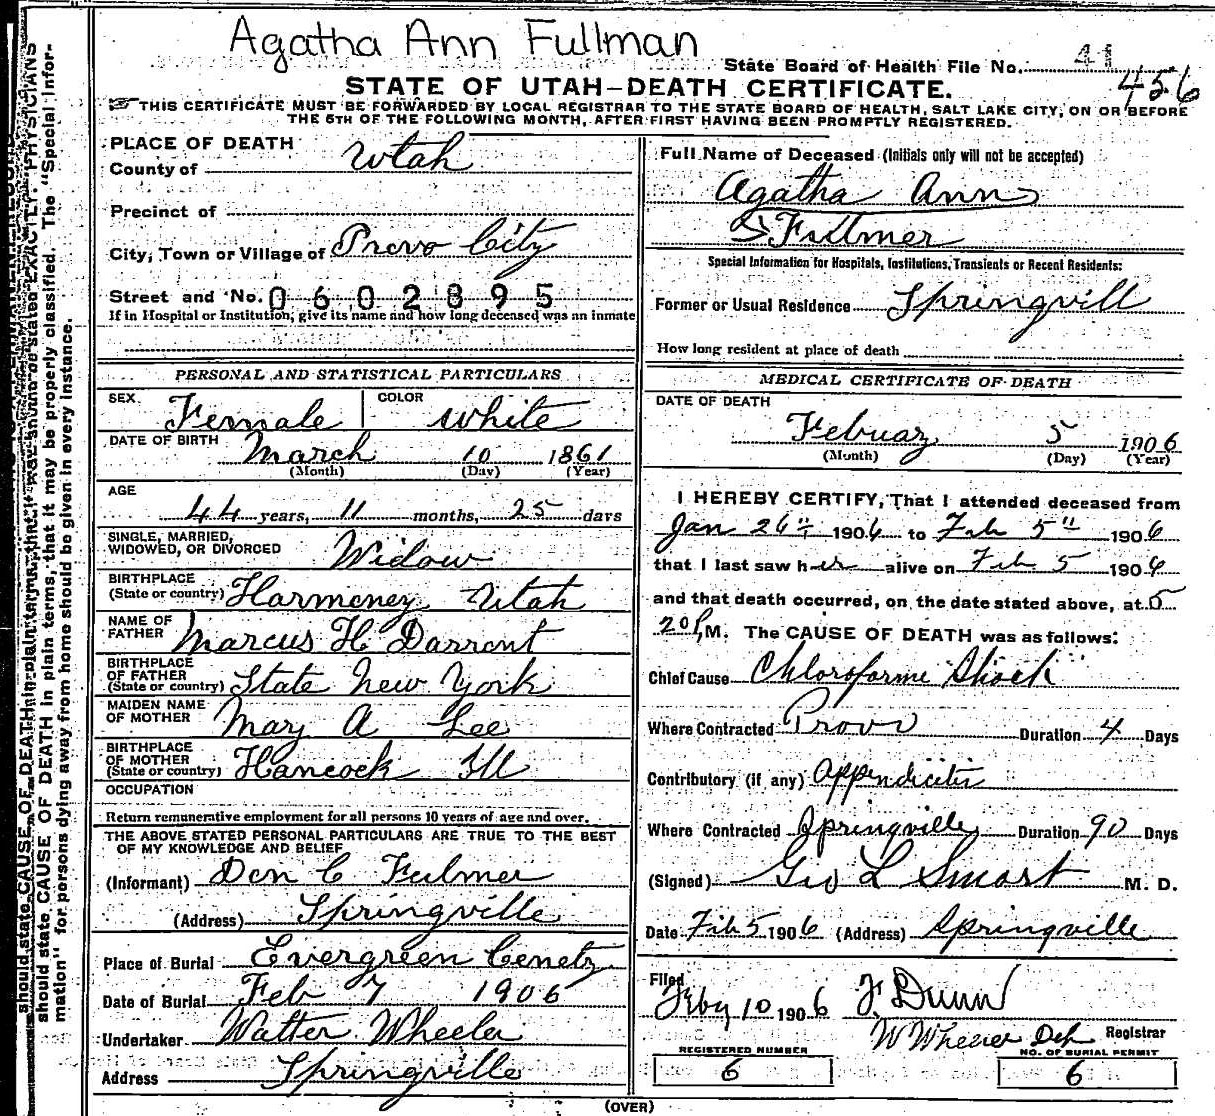 Agatha Ann Fullman
State Board of Health File No. 41
456
STATE OF UTAH-DEATH CERTIFICATE.
THIS CERTIFICATE MUST BE FORWARDED BY LOCAL REGISTRAR TO THE STATE BOARD OF HEALTH, SALT LAKE CITY, ON OR BEFORE
THE 5TH OF THE FOLLOWING MONTH, AFTER FIRST HAVING BEEN PROMPTLY REGISTERED.
PLACE OF DEATH
County of Utah
Precinct of
City, Town or Village of Provo City
Street and No. 0602895
If in Hospital or Institution, give its name and how long deceased was an inmate
PERSONAL AND STATISTICAL PARTICULARS
SEX. Female COLOR White
DATE OF BIRTH March 10 1861
(Month) (Day) (Year)
AGE
44 years, 11 months, 25 days
SINGLE, MARRIED,
WIDOWED, OR DIVORCED Widow
BIRTHPLACE
(State or country) Harmoney Utah
NAME OF
FATHER Marcus H Darront
BIRTHPLACE
OF FATHER
(State or country) State New York
MAIDEN NAME
OF MOTHER Mary A Lee
BIRTHPLACE
OF MOTHER
(State or country) Hancock Ill
OCCUPATION
Return remunerative employment for all persons 10 years of age and over.
THE ABOVE STATED PERSONAL PARTICULARS ARE TRUE TO THE BEST
OF MY KNOWLEDGE AND BELIEF
(Informant) Don C Fulmer
(Address) Springville
Place of Burial Evergreen Cemetry
Date of Burial Feb 7 1906
Undertaker Walter Wheeler
Address Springville
Full Name of Deceased (Initials only will not be accepted)
Agatha Ann
Fullmer
Special Information for Hospitals, Institutions, Transients or Recent Residents:
Former or Usual Residence Springvill
How long resident at place of death
MEDICAL CERTIFICATE OF DEATH
DATE OF DEATH
Febuary 5 1906
(Month) (Day) (Year)
I HEREBY CERTIFY, That I attended deceased from
Jan 26th 1906 to Feb 5th 1906
that I last saw her alive on Feb 5 1906
and that death occurred, on the date stated above, at 5
20 P M. The CAUSE OF DEATH was as follows:
Chief Cause Chloroforme Shock
Where Contracted Provo Duration 4 Days
Contributory (if any) Appendicitis
Where Contracted Springville Duration 90 Days
(Signed) Geo L Smart M. D.
Date Feb 5 1906 (Address) Springville
Filed
Feby 10 1906 F. Dunn
W Wheeler Dep Registrar
REGISTERED NUMBER
6
NO. OF BURIAL PERMIT
6
(OVER)
should state CAUSE OF DEATH in plain terms, that it may be properly classified. The "Special Infor-
mation" for persons dying away from home should be given in every instance.